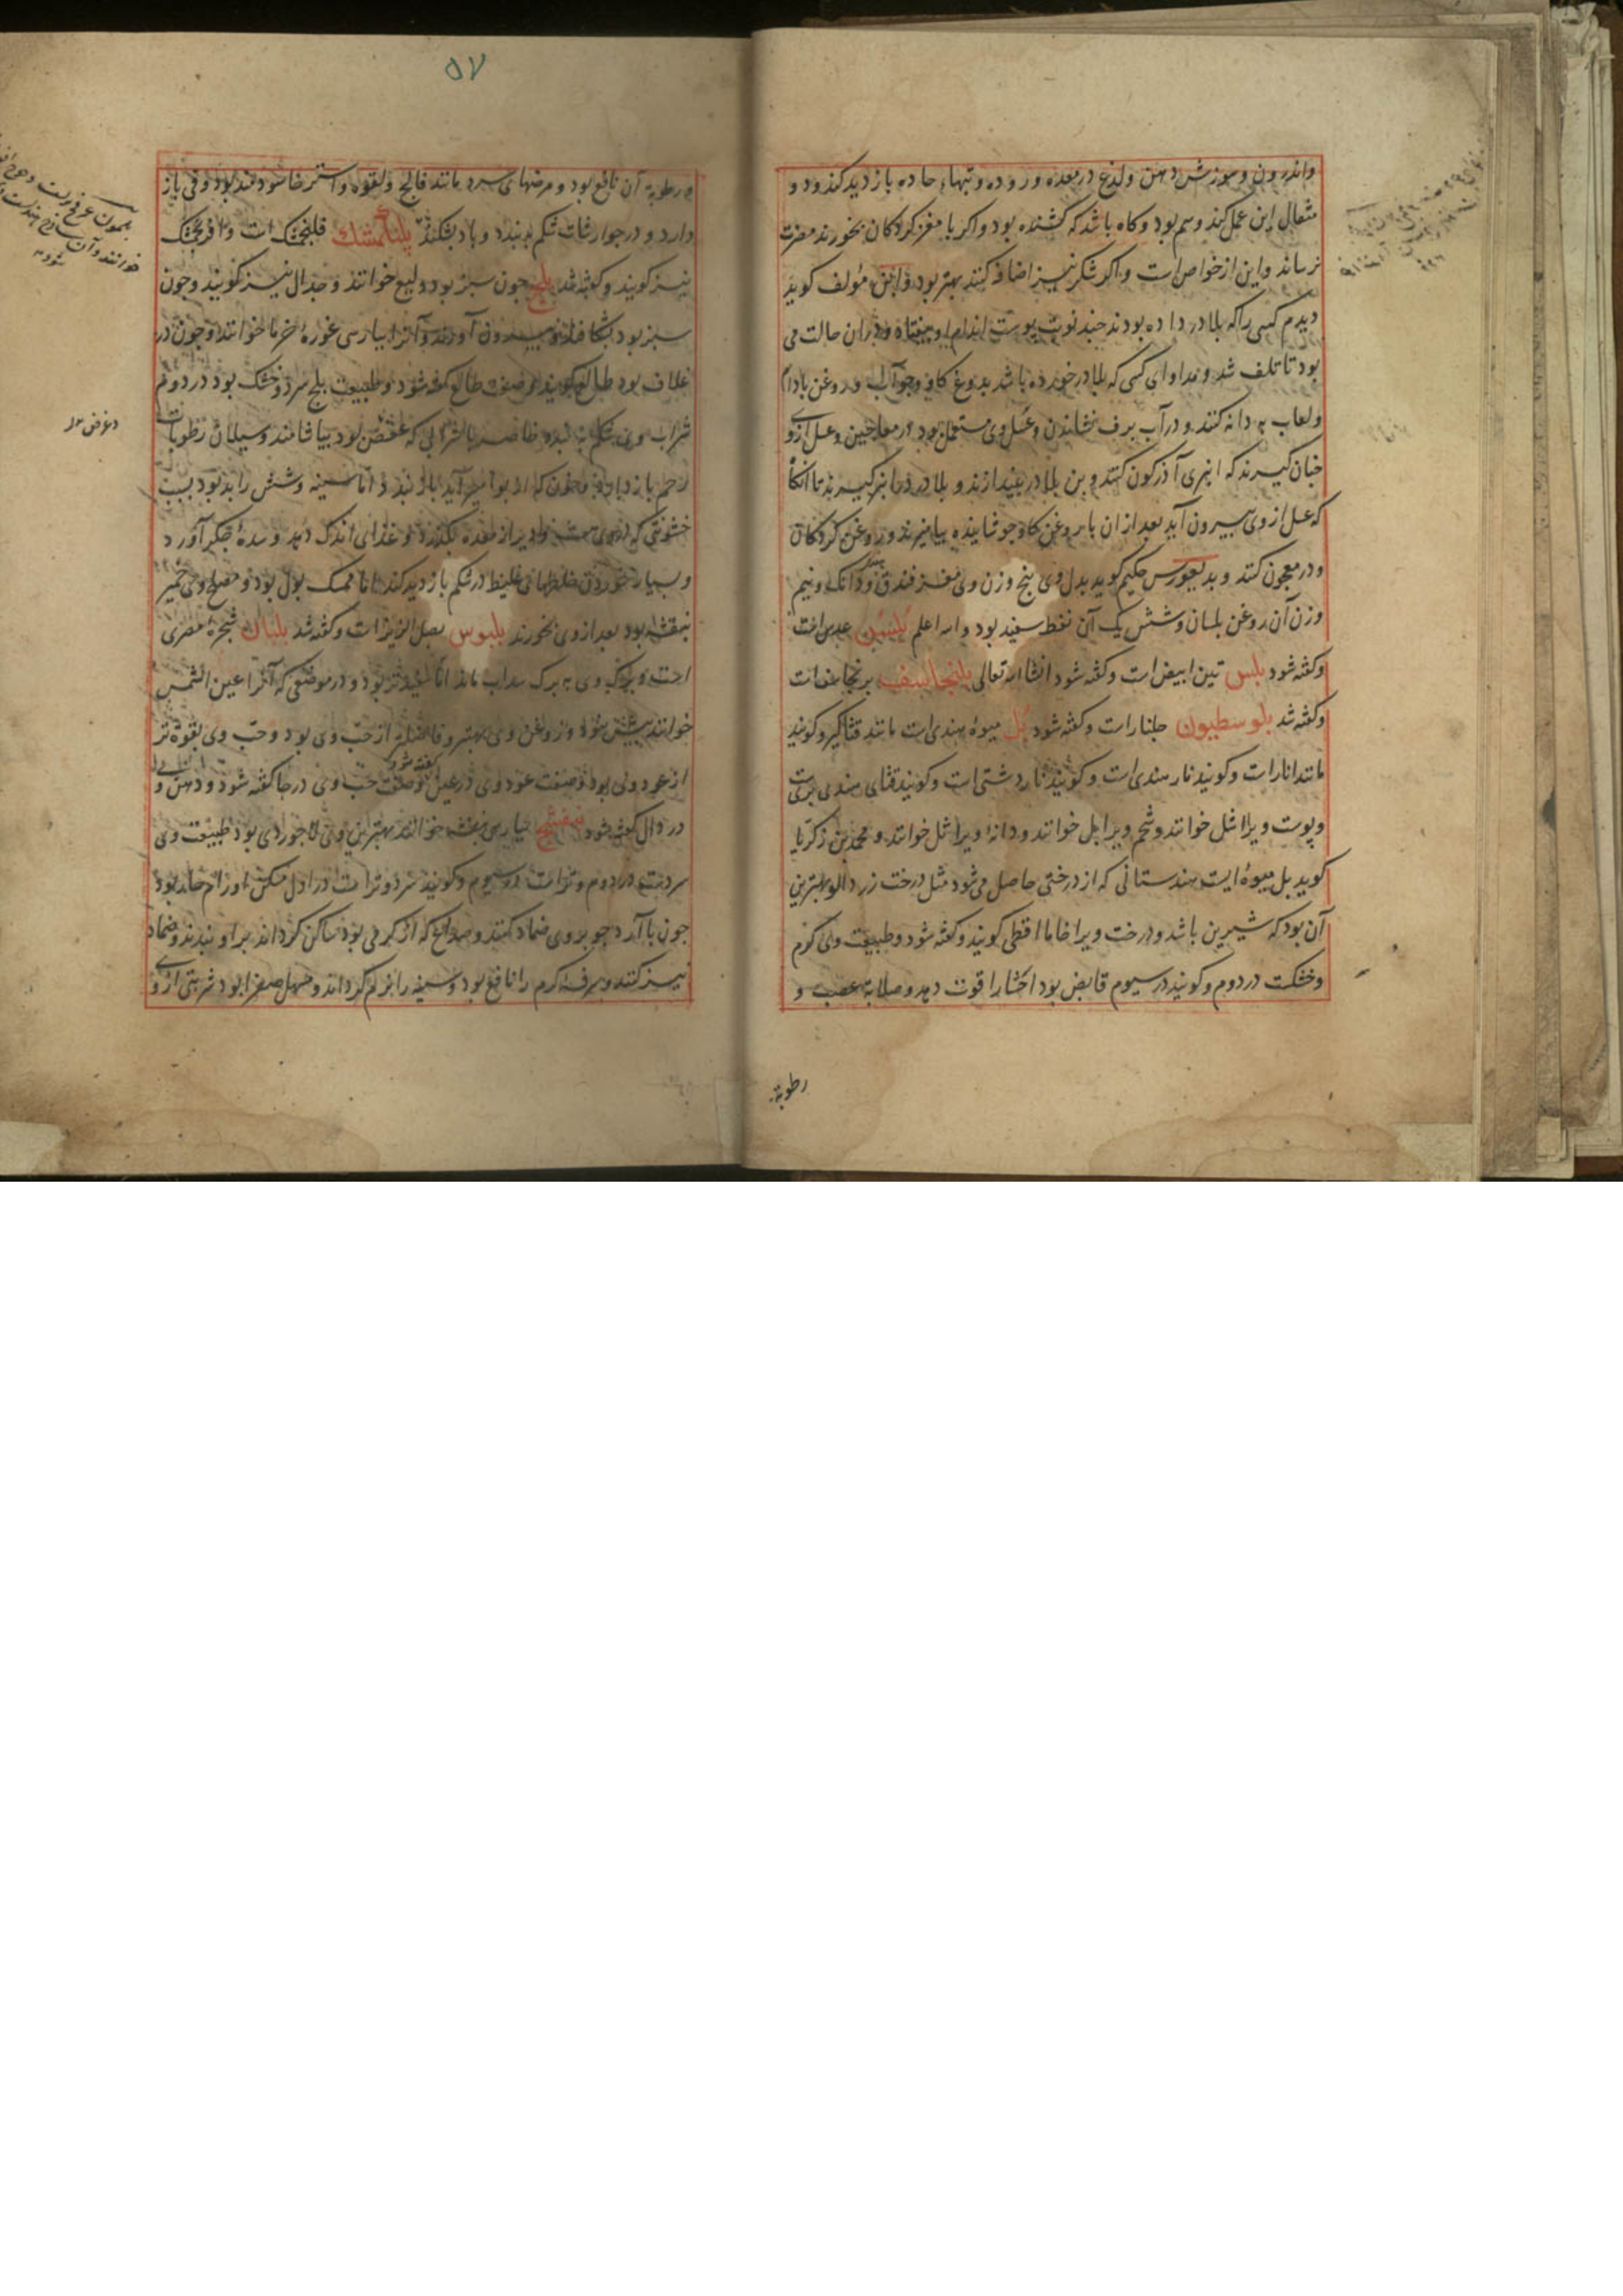 واندرون وسوزش دهن ولذع در معده و روده وتبهاء حاده بازدید کند و دو
مثقال ازین عمل کند وسم بود وکاه باشد که کشنده بود واکر با مغز کردکان بخورند مضرت
نرساند واین از خواص است واکر شکر نیز اضافه کنند بهتر بود مؤلف کوید
دیدم کسی را که بلادر داده بودند چند نوبت پوست اندام او بیفتاد ودران حالت می
بود تا تلف شد ومداوای کسی که بلادر خورده باشد بدوغ کاو وجوآب وروغن بادام
ولعاب به دانه کنند ودر آب برف نشاندن وعسل وی مستعمل بود در معاجین وعسل ازوی
چنان کیرند که انبری آذرکون کنند وبن بلادر بیندازند و بلادر در انبر کیرند تا آنکاه
که عسل از وی بیرون آید بعد از ان با روغن کاو جوشانیده بیامیزند ودر روغن کردکان
ودر معجون کنند و بدیغورس حکیم کوید بدل وی پنج وزن وی مغز فندق ودانک ونیم
وزن آن روغن بلسان وشش یک آن نفط سفید بود والله اعلم بلسن عدس است
وکفته شود بلس تین ابیض است وکفته شود انشاالله تعالی بلنجاسف برنجاسف است
وکفته شد بلوسطیون جلنار است وکفته شود بل میوه هندی است مانند قثا کبر وکویند
مانند انار است وکویند نار هندی است وکویند نار دشتی است وکویند قثای هندی
وپوست ویرا شل خوانند وشحم ویرا بل خوانند ودانه ویرا ثل خوانند ومحمد بن زکریا
کوید بل میوه ایست هندستانی که از درختی حاصل می شود مثل درخت زردالو بهترین
آن بود که شیرین باشد ودرخت ویرا خاما اقطی کویند وکفته شود وطبیعت وی کرم
وخشکست در دوم وکویند در سیوم قابض بود احشا را قوت دهد وصلابة عصب و
رطوبة
۵۷
ورطوبة آن نافع بود ومرضهای سرد مانند فالج ولقوه واسترخا سودمند بود وقی باز
دارد و در جوارشات شکم ببندد وباد بشکند پلنکمشک فلنجمشک است وافرنجمشک
نیز کویند وکفته شد بلح چون سبز بود ولیع خوانند وجدال نیز کویند وچون
سبز بود بشکافند وبیرون آورند وآنرا بپارسی غوره خرما خوانند وچون در
غلاف بود طلع کویند وصفت طلع کفته شود وطبیعت بلح سرد وخشک بود در دوم
شراب وی شکم ببندد خاصه با شرابی که عفص بود بیاشامند وسیلان رطوبات
رحم باز دارد وخون که از بواسیر آید باز بندد اما سینه وشش را بد بود بسبب
خشونتی که در وی هست ودیر از معده بکذرد وغذای اندک دهد وسده جکر آورد
وبسیار خوردن خلطهای غلیظ در شکم بازدید کند اما ممسک بول بود ومصلح وی خمیر
بنفشه بود بعد از وی بخورند بلبوس بصل الزیز است وکفته شد بلسان شجره مصری
است وبرک وی به برک سداب ماند اما سفیدتر بود ودر موضعی که آنرا عین الشمس
خوانند بیشتر بود وروغن وی بهتر وفاضلتر از حب وی بود وحب وی بقوة تر
از عود وی بود وصفت عود وی در عین کفته شود وصفت حب وی در حا کفته شود ودهن وی
در دال کفته شود بنفسج بپارسی بنفشه خوانند بهترین وی لاجوردی بود طبیعت وی
سردست در دوم وترست در سیوم وکویند سرد وتر است در اول مسکن اورام حاد بود
چون با آرد جو بروی ضماد کنند وصداع که از کرمی بود ساکن کرداند برا وببندند وضماد
نیز کنند وسرفه کرم را نافع بود وسینه را نرم کرداند ومسهل صفرا بود شربتی از وی